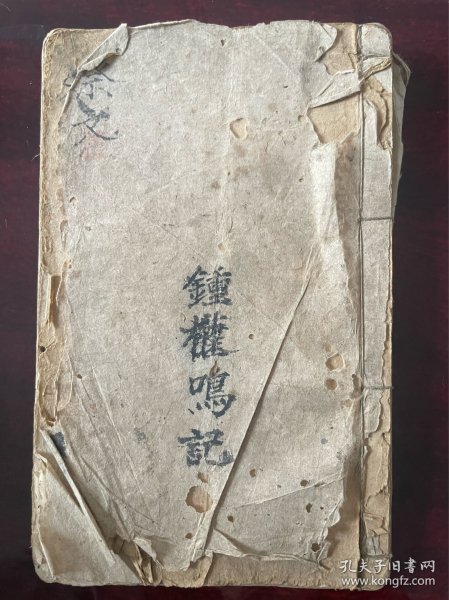 鍾權鳴記
孔夫子旧书网
www.kongfz.com